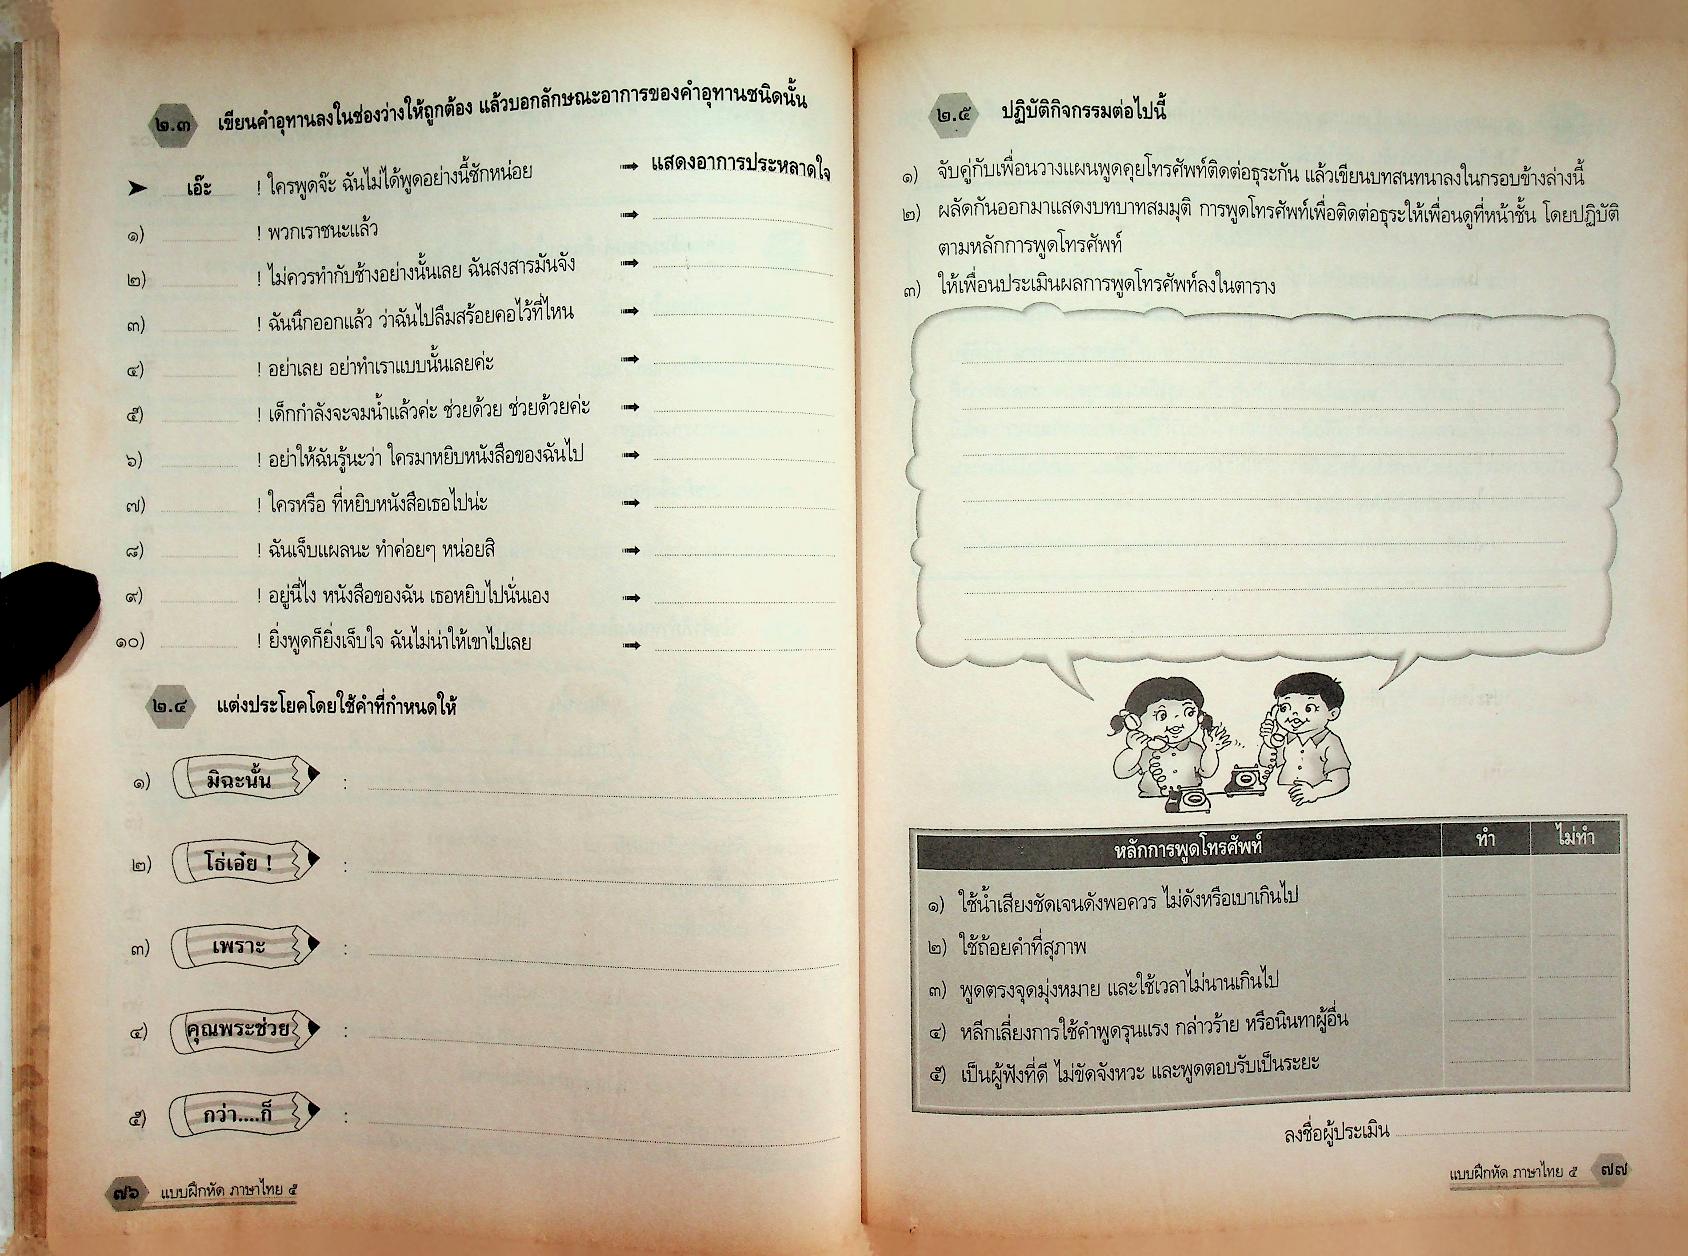 ๒.๓ เขียนคำอุทานลงในช่องว่างให้ถูกต้อง แล้วบอกลักษณะอาการของคำอุทานชนิดนั้น
➤ เอ๊ะ ! ใครพูดจ๊ะ ฉันไม่ได้พูดอย่างนี้ซักหน่อย ➟ แสดงอาการประหลาดใจ
๑) ! พวกเราชนะแล้ว ➟
๒) ! ไม่ควรทำกับช้างอย่างนั้นเลย ฉันสงสารมันจัง ➟
๓) ! ฉันนึกออกแล้ว ว่าฉันไปลืมสร้อยคอไว้ที่ไหน ➟
๔) ! อย่าเลย อย่าทำเราแบบนั้นเลยค่ะ ➟
๕) ! เด็กกำลังจะจมน้ำแล้วค่ะ ช่วยด้วย ช่วยด้วยค่ะ ➟
๖) ! อย่าให้ฉันรู้นะว่า ใครมาหยิบหนังสือของฉันไป ➟
๗) ! ใครหรือ ที่หยิบหนังสือเธอไปน่ะ ➟
๘) ! ฉันเจ็บแผลนะ ทำค่อยๆ หน่อยสิ ➟
๙) ! อยู่นี่ไง หนังสือของฉัน เธอหยิบไปนั่นเอง ➟
๑๐) ! ยิ่งพูดก็ยิ่งเจ็บใจ ฉันไม่น่าให้เขาไปเลย ➟
๒.๔ แต่งประโยคโดยใช้คำที่กำหนดให้
๑) มิฉะนั้น :
๒) โธ่เอ๋ย ! :
๓) เพราะ :
๔) คุณพระช่วย :
๕) กว่า....ก็ :
๗๖ แบบฝึกหัด ภาษาไทย ๕
๒.๕ ปฏิบัติกิจกรรมต่อไปนี้
๑) จับคู่กับเพื่อนวางแผนพูดคุยโทรศัพท์ติดต่อธุระกัน แล้วเขียนบทสนทนาลงในกรอบข้างล่างนี้
๒) ผลัดกันออกมาแสดงบทบาทสมมุติ การพูดโทรศัพท์เพื่อติดต่อธุระให้เพื่อนดูที่หน้าชั้น โดยปฏิบัติ
ตามหลักการพูดโทรศัพท์
๓) ให้เพื่อนประเมินผลการพูดโทรศัพท์ลงในตาราง
หลักการพูดโทรศัพท์ ทำ ไม่ทำ
๑) ใช้น้ำเสียงชัดเจนดังพอควร ไม่ดังหรือเบาเกินไป
๒) ใช้ถ้อยคำที่สุภาพ
๓) พูดตรงจุดมุ่งหมาย และใช้เวลาไม่นานเกินไป
๔) หลีกเลี่ยงการใช้คำพูดรุนแรง กล่าวร้าย หรือนินทาผู้อื่น
๕) เป็นผู้ฟังที่ดี ไม่ขัดจังหวะ และพูดตอบรับเป็นระยะ
ลงชื่อผู้ประเมิน
แบบฝึกหัด ภาษาไทย ๕ ๗๗